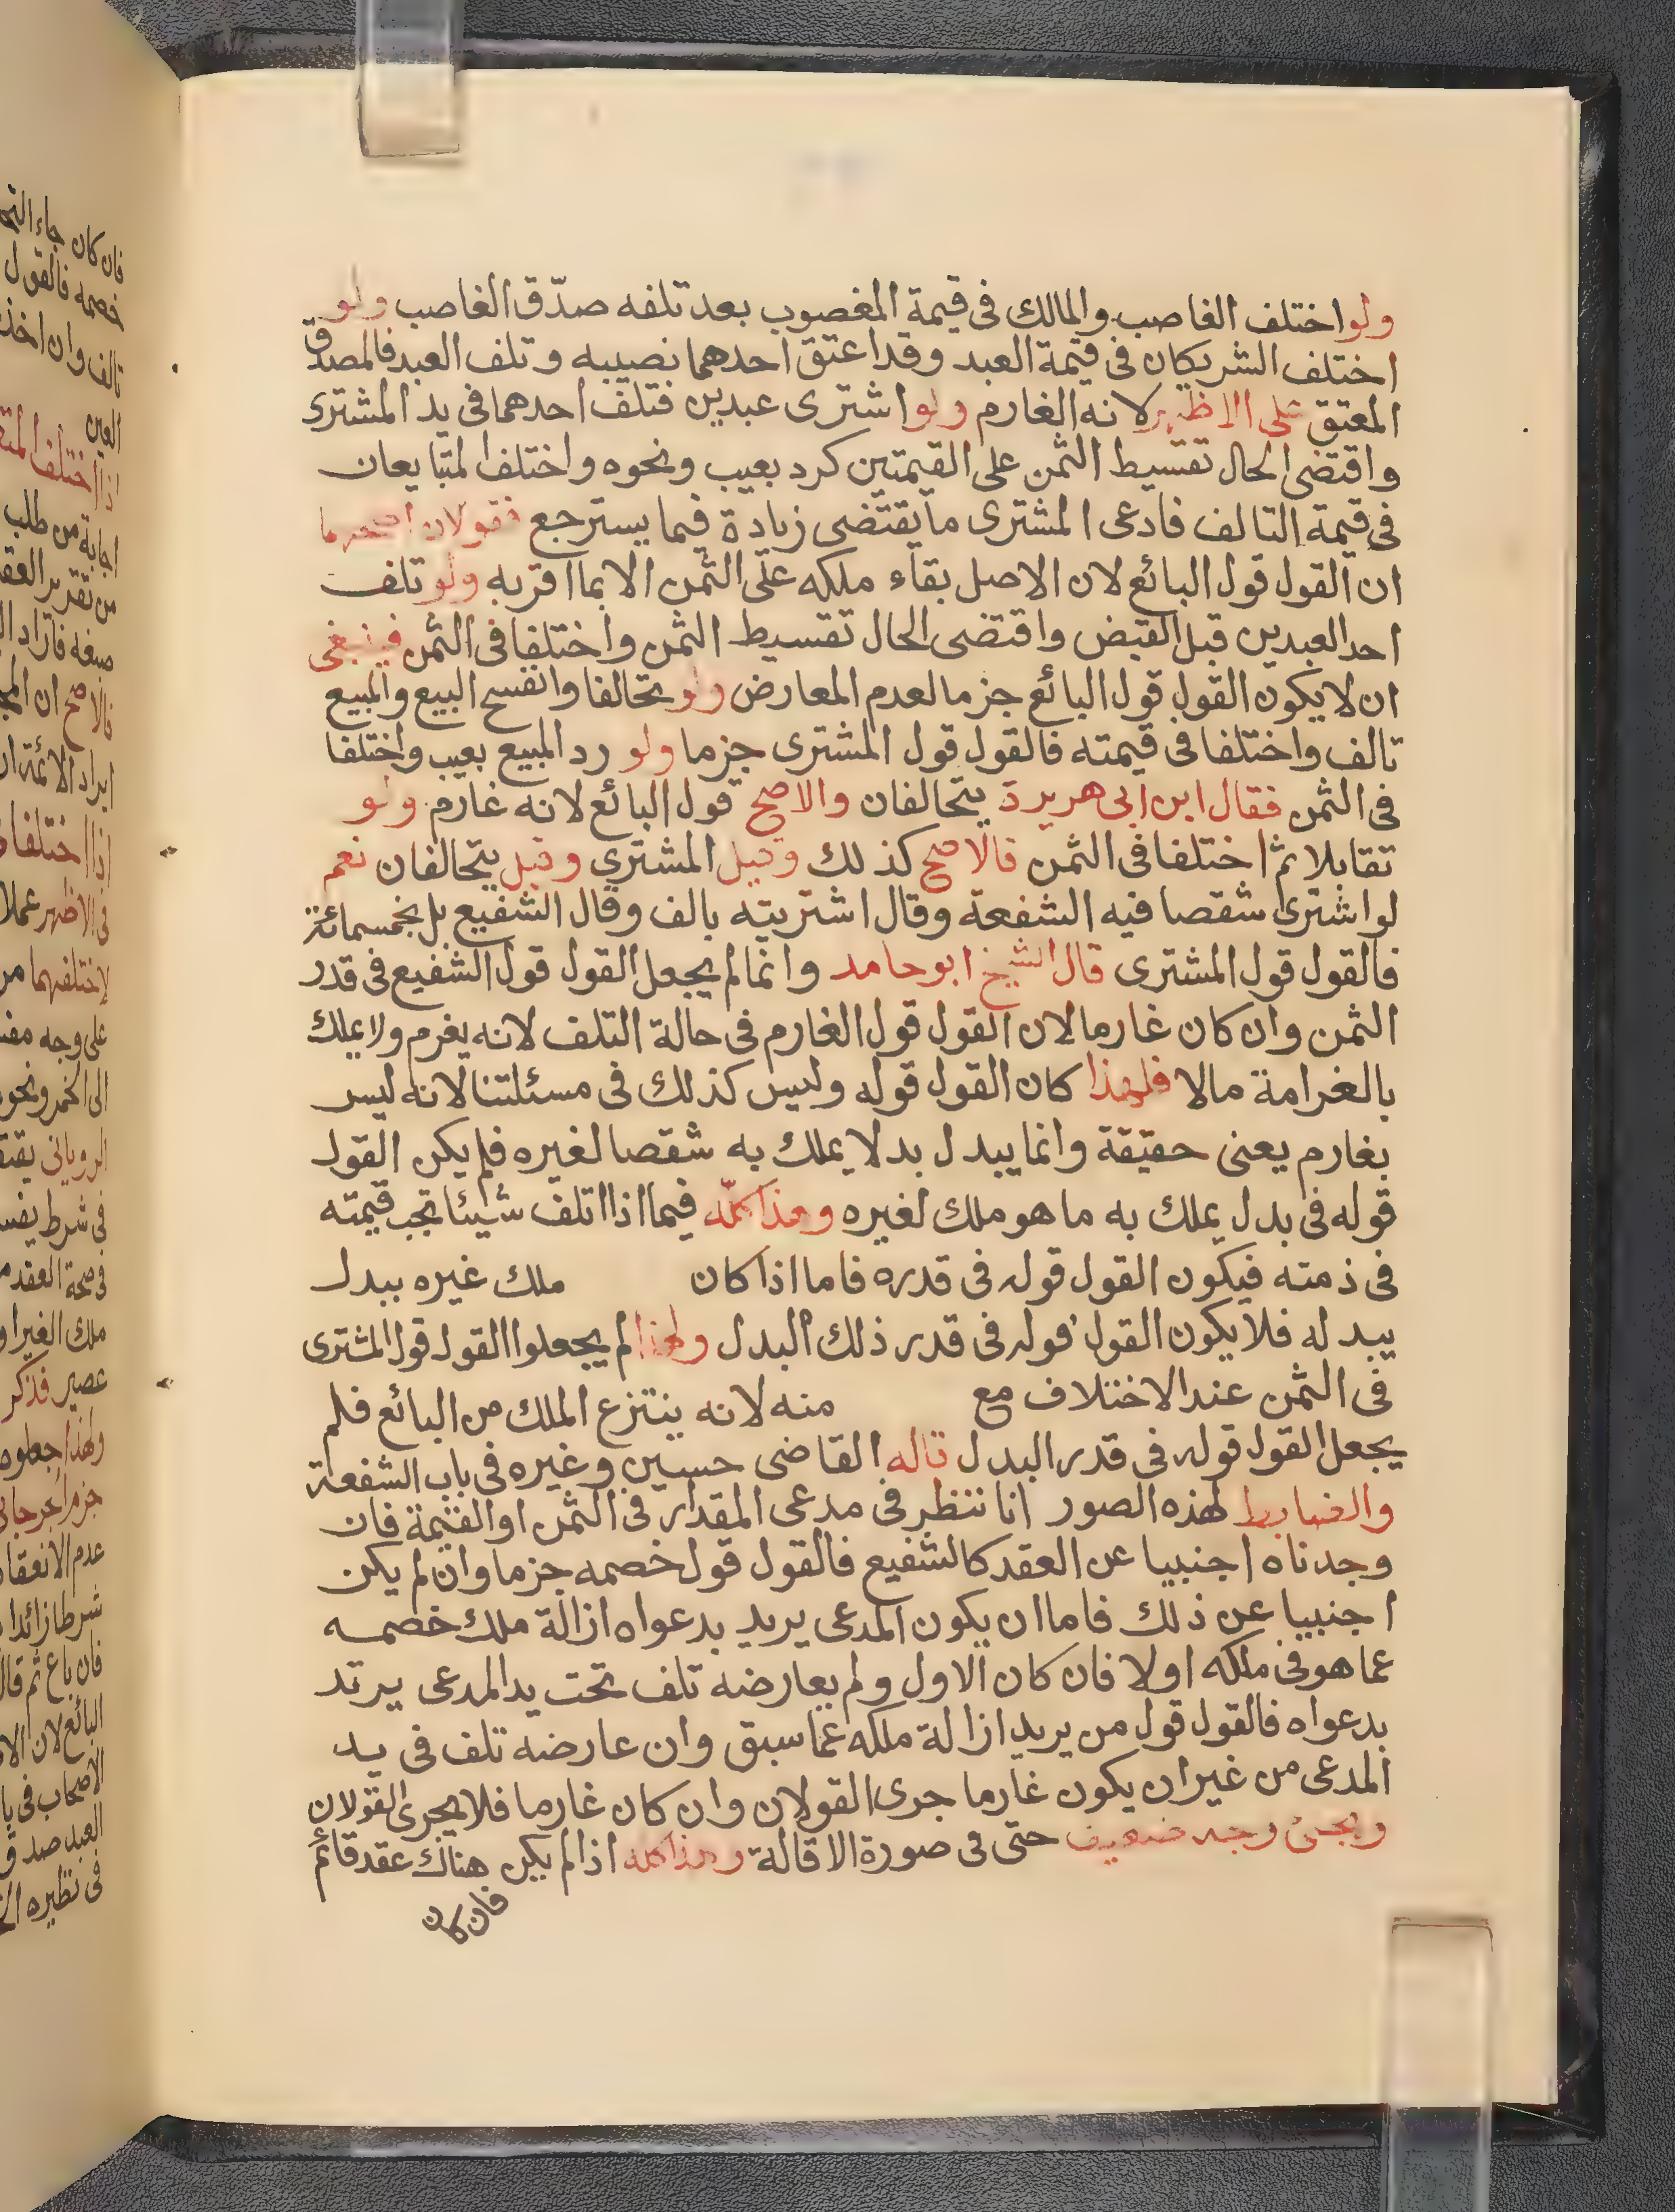 ولو اختلف الغاصب والمالك فى قيمة المغصوب بعد تلفه صدّق الغاصب ولو
اختلف الشريكان فى قيمة العبد وقد اعتق احدهما نصيبه وتلف العبد فالمصدق
المعتق على الاظهر لانه الغارم ولو اشترى عبدين فتلف احدهما فى يد المشترى
واقتضى الحال تقسيط الثمن على القيمتين كرد بعيب ونحوه واختلف المتبايعان
فى قيمة التالف فادعى المشترى ما يقتضى زيادة فيما يسترجع فقولان اصحهما
ان القول قول البائع لان الاصل بقاء ملكه على الثمن الا بما اقر به ولو تلف
احد العبدين قبل القبض واقتضى الحال تقسيط الثمن واختلفا فى الثمن فينبغى
ان لا يكون القول قول البائع جزما لعدم المعارض ولو تحالفا وانفسخ البيع والمبيع
تالف واختلفا فى قيمته فالقول قول المشترى جزما ولو رد المبيع بعيب واختلفا
فى الثمن فقال ابن ابى هريرة يتحالفان والاصح قول البائع لانه غارم ولو
تقايلا ثم اختلفا فى الثمن فالاصح كذلك وقيل المشترى وقيل يتحالفان نعم
لو اشترى شقصا فيه الشفعة وقال اشتريته بالف وقال الشفيع بل بخمسمائة
فالقول قول المشترى قال الشيخ ابو حامد وانما لم يجعل القول قول الشفيع فى قدر
الثمن وان كان غارما لان القول قول الغارم فى حالة التلف لانه يغرم ولا يملك
بالغرامة مالا فلهذا كان القول قوله وليس كذلك فى مسئلتنا لانه ليس
بغارم يعنى حقيقة وانما يبدل بدلا يملك به شقصا لغيره فلم يكن القول
قوله فى بدل يملك به ما هو ملك لغيره وهذا كلّه فيما اذا اتلف شيئا تجب قيمته
فى ذمته فيكون القول قوله فى قدره فاما اذا كان ملك غيره ببدل
يبدله فلا يكون القول قوله فى قدر ذلك البدل ولهذا لم يجعلوا القول قول المشترى
فى الثمن عند الاختلاف مع منه لانه ينتزع الملك من البائع فلم
يجعل القول قوله فى قدر البدل قاله القاضى حسين وغيره فى باب الشفعة
والضابط لهذه الصور انا ننظر فى مدعى المقدار فى الثمن او القيمة فان
وجدناه اجنبيا عن العقد كالشفيع فالقول قول خصمه جزما وان لم يكن
اجنبيا عن ذلك فاما ان يكون المدعى يريد بدعواه ازالة ملك خصمه
عما هو فى ملكه اولا فان كان الاول ولم يعارضه تلف تحت يد المدعى يرتد
بدعواه فالقول قول من يريد ازالة ملكه عما سبق وان عارضه تلف فى يد
المدعى من غير ان يكون غارما جرى القولان وان كان غارما فلا يجرى القولان
ويجئ وجه ضعيف حتى فى صورة الاقالة وهذا كله اذا لم يكن هناك عقد قائم
فان كان